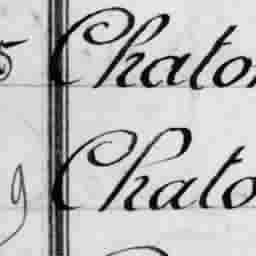 5 Chato
9 Chato